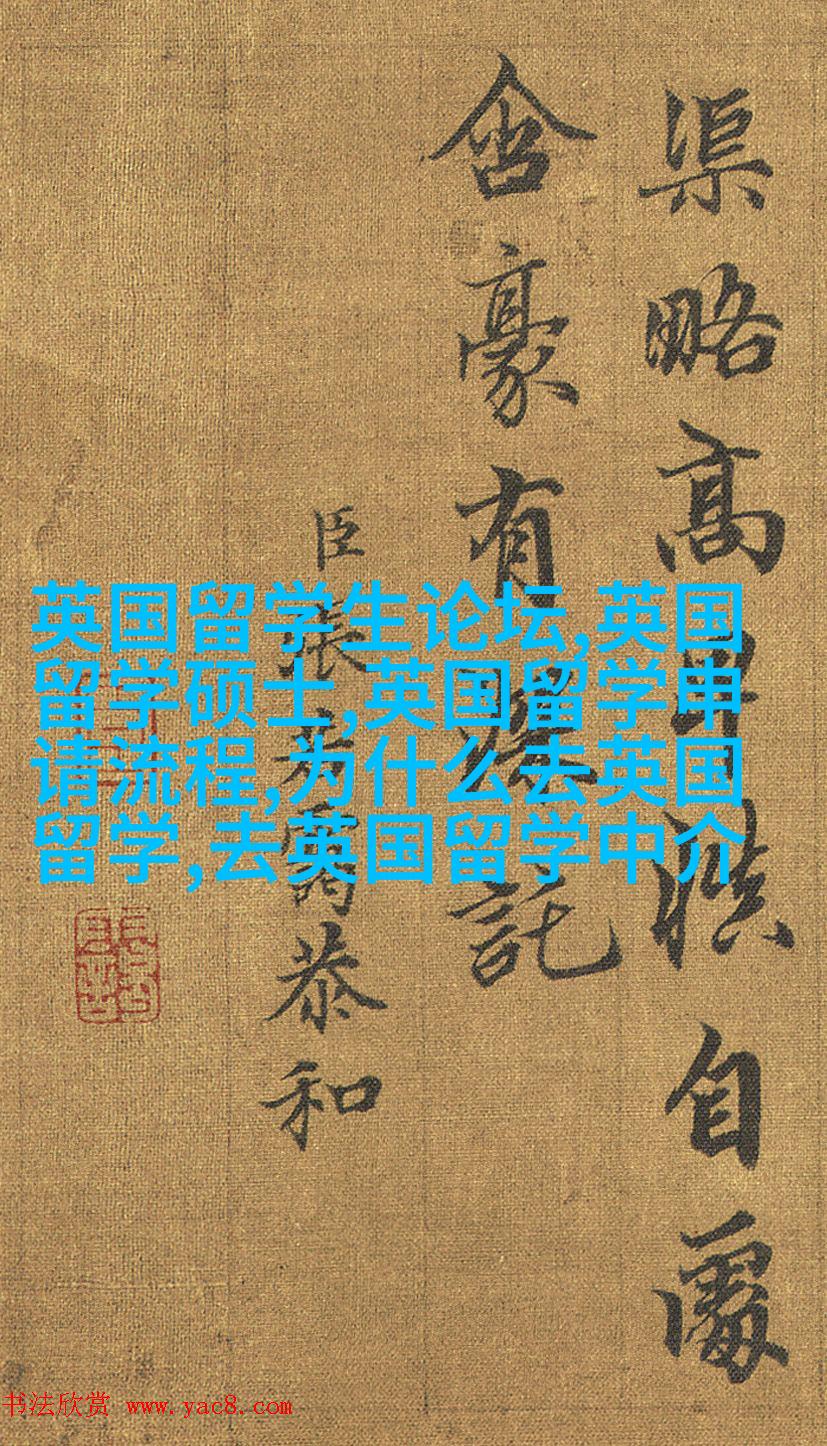 渠略高卑自
含豪有深託
臣張若靄恭和
英国留学生论坛,英国
留学硕士,英国留学申
请流程,为什么去英国
留学,去英国留学中介
书法欣赏 www.yac8.com